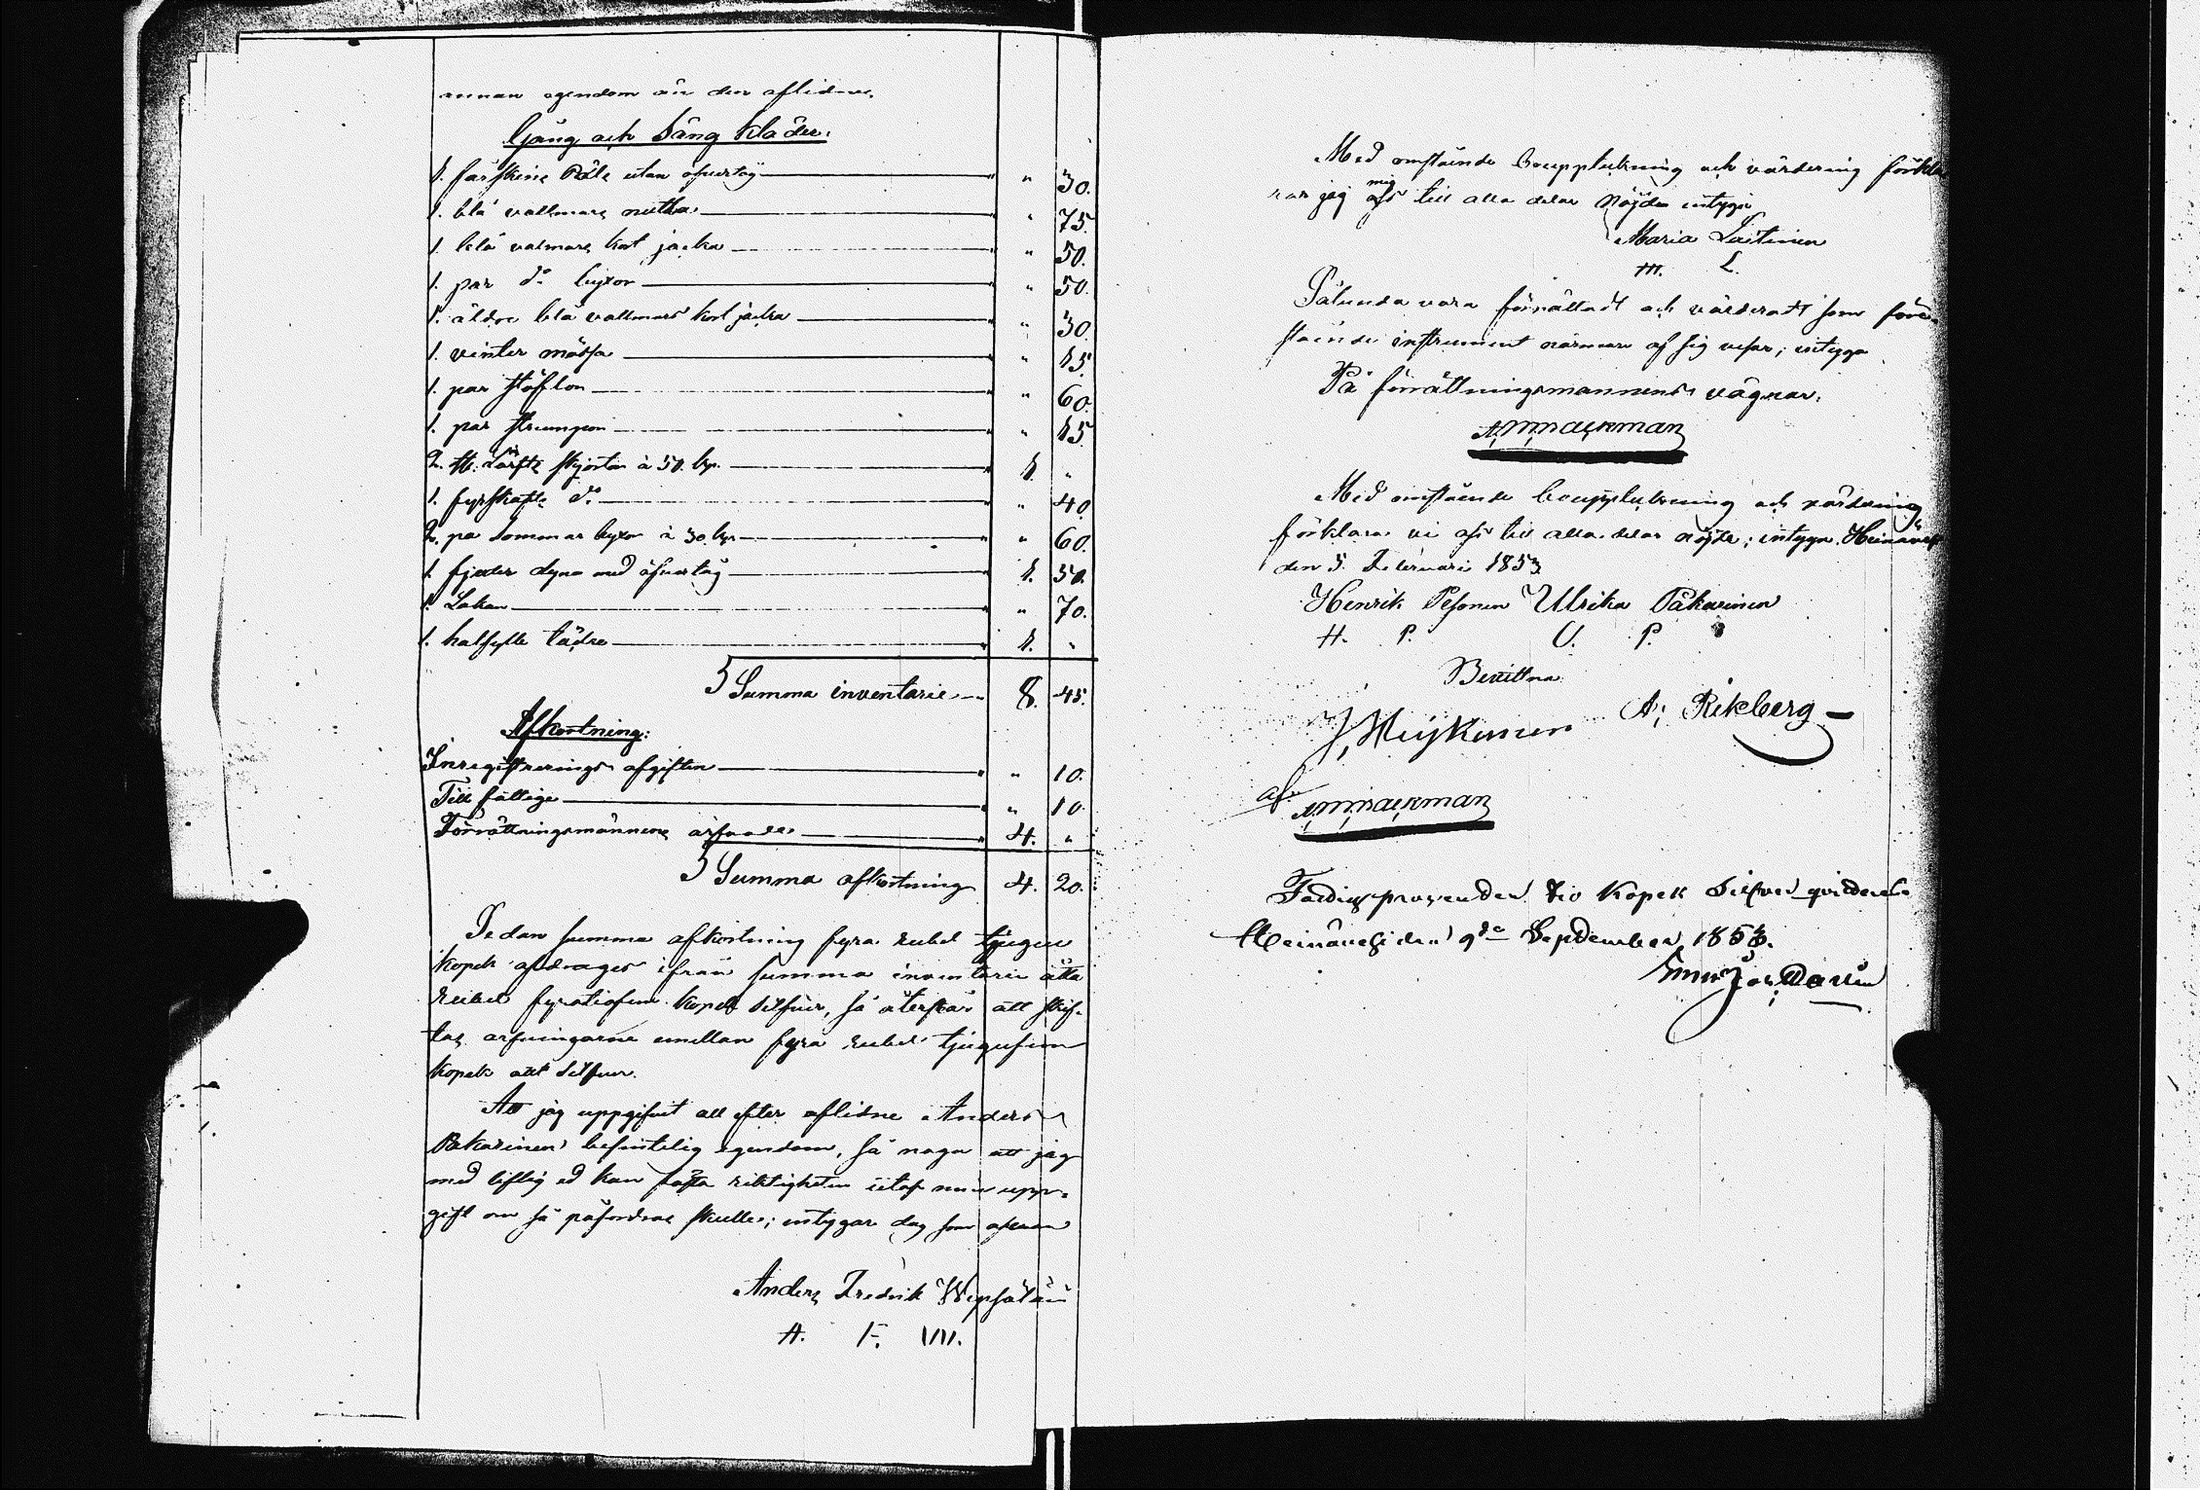 annan egendom än den aflidnes.
Gång och Säng kläder.
1. fårskins Päls utan öfvertyg " 30.
1. blå vallmars " 75.
1. blå valmars kort jacka " 50.
1. par do byxor " 50.
1. äldre blå vallmars kort jacka " 30.
1. vinter mössa " 15.
1. par stöflor " 60.
1. par strumpor " 15.
2. st. Lärfts skjortor à 50. kop. 1. "
1. fyrskafts do " 40.
2. pa sommar byxor à 30 kop " 60.
1. fjäder dyna med öfvertyg 1. 50.
1. Lakan " 70.
1. halfylle täcke 1. "
Summa inventarie 8. 45.
Afkortning:
Inregistrerings afgiften " 10.
Till fattige " 10.
Förrättningsmännens arfvode 4. "
Summa afkortning 4. 20.
Sedan summa afkortning fyra rubel tjugu
kopek afdrages ifrån summa inventarie åtta
rubel fyratiofem kopek silfver, så återstår att skif-
tas arfvingarne emellan fyra rubel tjugufem
kopek allt silfver.
Att jag uppgifvit all efter aflidne Anders
Pakarinen befintelig egendom, så noga att jag
med liflig ed kan fästa riktigheten utaf min upp-
gift om så påfordras skulle; intygar dag som ofvan
Anders Fredrik Wepsäläin
A. F. W.
Med omstående bouppteckning och värdering förkla
rar jag mig till alla delar nöjde intygar
Maria Laitinen
M. L.
Sålunda vara förrättadt och värderadt som före-
stående instrument närmare af sig visar; intyga
På förrättningsmannens vägnar.
A. M. Mackman
Med omstående bouppteckning och värdering
förklara vi oss till alla delar nöjde; intyga. Heinäves
den 5. Februari 1853
Henrik Pesonen Ulrika Pakarinen
H. P. U. P.
Bevittna
J. Heiskanen A. Rikberg
af
A. M. Mackman
Fattigprocenten tio Kopek Silfver qvitteras
Heinävesi den 9de September 1853.